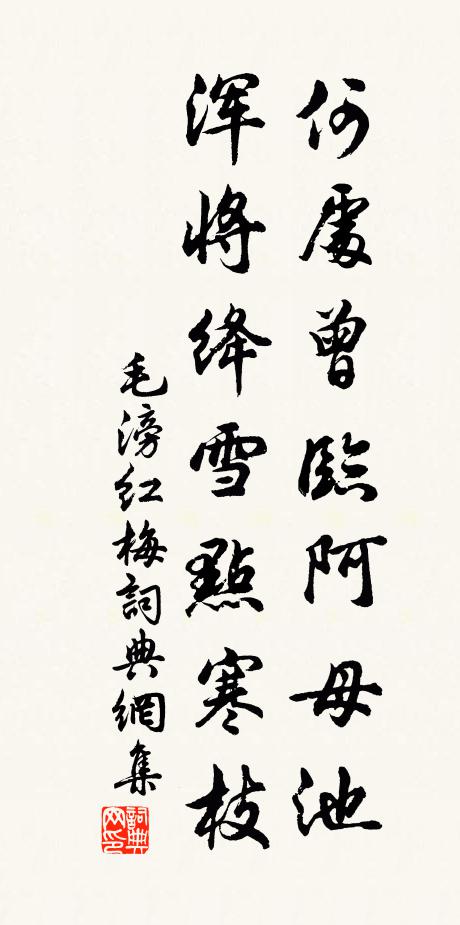 何處曾臨阿母池
渾將絳雪點寒枝
毛滂紅梅詞典網集
詞典网印